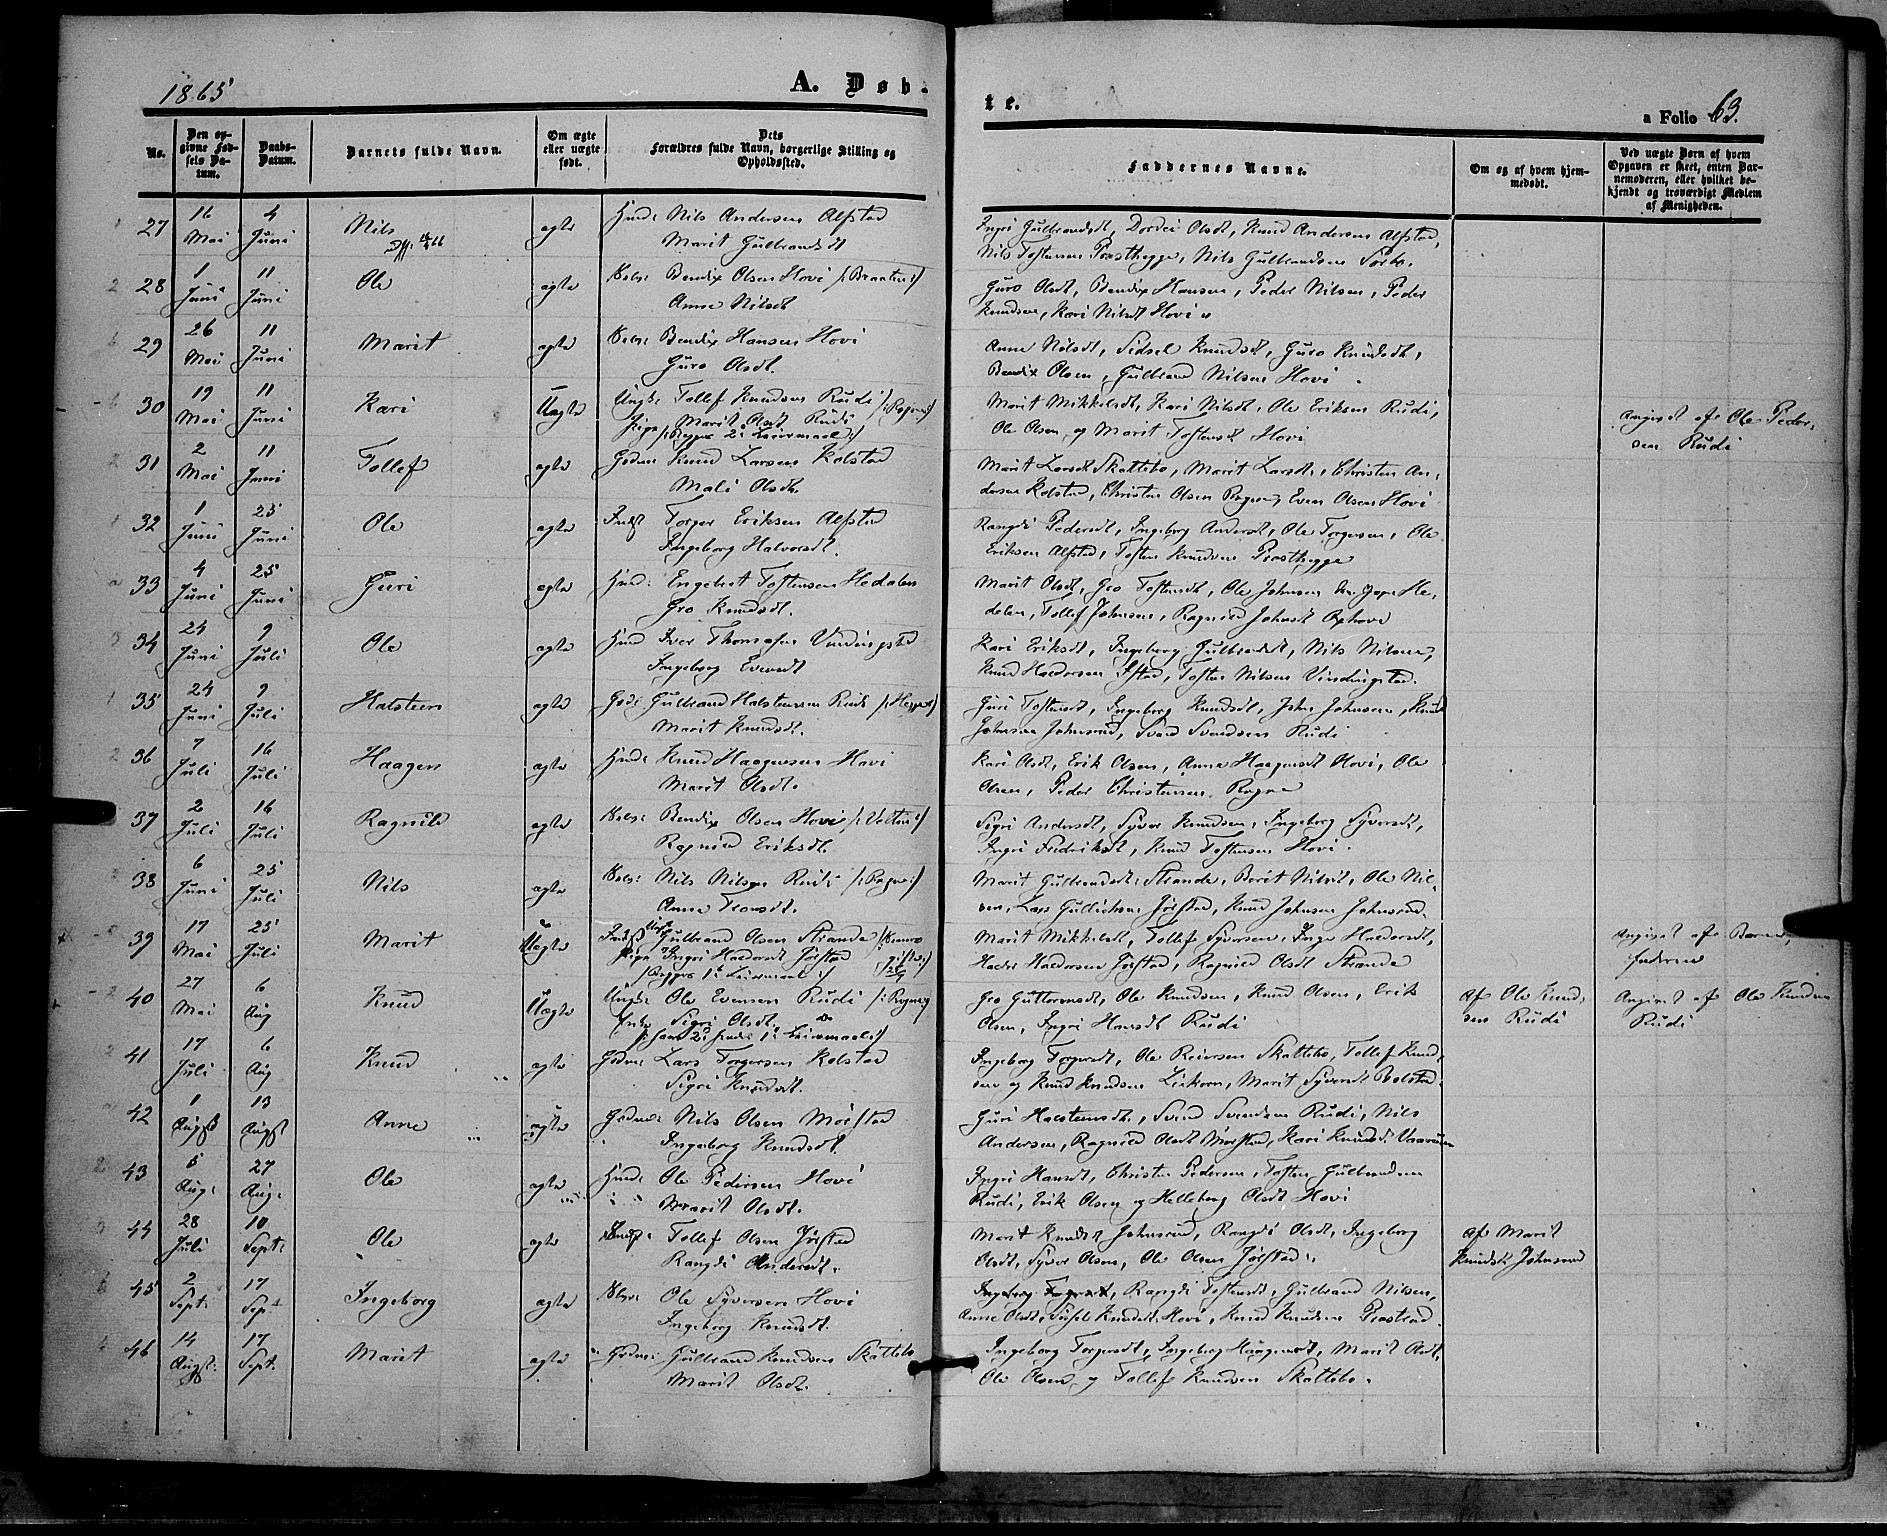 1865
A. Døb-
te.
a Folio 63.
No.
Den op-
givne Fød-
sels Da-
tum.
Daabs-
Datum.
Barnets fulde Navn.
Om ægte
eller uægte
født.
Dets
Forældres fulde Navn, borgerlige Stilling og
Opholdssted.
Faddernes Navne.
Om og af hvem hjem-
medøbt.
Ved uægte Børn af hvem
Opgaven er skeet, enten Bar-
nemoderen, eller hvilket be-
kjendt og troværdigt Medlem
af Menigheden.
27 16 Mai 4 Juni Nils ægte Nils Andersen Alfstad
Marit Gulbrandsdt
Ingri Gulbrandsdt, Dordei Olsdt, Knud Andersen Alfstad,
Nils Tostensen Præsthegge, Nils Gulbrandsen Sørbo.
28 1 Juni 11 Juni Ole ægte Bendix Olsen Hovi /:Braaten:/
Anne Nilsdt
Guro Olsdt, Bendix Hansen, Peder Nilsen, Peder
Knudsen, Kari Nilsdt Hovi
29 26 Mai 11 Juni Marit ægte Bendix Hansen Hovi
Guro Olsdt.
Anne Nilsdt, Sidsel Knudsdt, Guro Knudsdt,
Bendix Olsen, Gulbrand Nilsen Hovi.
30 19 Mai 11 Juni Kari Uægte Ungk: Tollef Knudsen Rudi /:Rogne:/
Pige Marit Olsdt Rudi
/:Begges 2: Leiermaal:/
Marit Mikkelsdt, Kari Nilsdt, Ole Eriksen Rudi,
Ole Olsen og Marit Tostensdt Hovi
Angivet af Ole Peder-
sen Rudi
31 2 Mai 11 Juni Tollef ægte Knud Larsen Kolstad
Mali Olsdt.
Marit Larsdt Skattebo, Marit Larsdt, Christen An-
dersen Kolstad, Christen Olsen Rogne, Even Olsen Hovi
32 1 Juni 25 Juni Ole ægte Torger Eriksen Alfstad
Ingeborg Halvorsdt.
Rangdi Pedersdt, Ingeborg Andersdt, Ole Torgersen, Ole
Eriksen Alfstad, Tosten Knudsen Præsthegge
33 4 Juni 25 Juni Guri ægte Engebret Tostensen Hedalen
Gro Knudsdt.
Marit Olsdt, Gro Tostensdt, Ole Johnsen He-
dalen, Tollef Johnsen, Ragnild Johnsdt
34 24 Juni 9 Juli Ole ægte Iver Thomasen Vindingstad
Ingeborg Evensdt
Kari Eriksdt, Ingeborg Gulbrandsdt, Nils Nilsen,
Knud Haldorsen, Tosten Nilsen Vindingstad.
35 24 Juni 9 Juli Halsteen ægte Gulbrand Halstensen Rudi
Marit Knudsdt.
Guri Tostensdt, Ingeborg Knudsdt, John Johnsen, Knud
Johnsen Johnsrud, Svend Svendsen Rudi
36 7 Juli 16 Juli Haagen ægte Knud Haagensen Hovi
Marit Olsdt.
Kari Olsdt, Erik Olsen, Anne Haagensdt Hovi, Ole
Olsen, Peder Christensen Rogne
37 2 Juli 16 Juli Ragnild ægte Bendix Olsen Hovi
Ragnild Eriksdt.
Sigri Andersdt, Syver Knudsen, Ingeborg Syversdt,
Ingri Fredriksdt, Knud Tostensen Hovi.
38 6 Juni 25 Juli Nils ægte Nils Nilsen Rudi /:Rogne:/
Anne
Marit Gulbrandsdt Strande, Berit Nilsdt, Ole Nil-
sen, Lars Gullichsen Jørstad, Knud Johnsen Johnsrud.
39 17 Mai 25 Juli Marit Uægte Gulbrand Olsen Strande
Pige Ingri Haldorsdt Jørstad
/:Begges 1te Leiermaal:/
Marit Mikkelsdt, Tollef Syversen, Haldorsdt,
Haldor Haldorsen Jørstad, Ragnild Olsdt Strande
Angivet af Barne-
faderen
40 27 Mai 6 Aug Knud Uægte Ungk: Ole Evensen Rudi
Enke Sigri Olsdt,
/:hans 2: hendes 1: Leiermaal:/
Gro Guttormsdt, Ole Knudsen, Knud Olsen, Erik
Olsen, Ingri Hansdt Rudi
Af Ole Knud-
sen Rudi
Angivet af Ole Knudsen
Rudi
41 17 Juli 6 Aug Knud ægte Lars Torgersen Kolstad
Sigri Knudsdt.
Ingeborg Torgersdt, Ole Reiersen Skattebo, Tollef Knud-
sen og Knud Knudsen, Marit Syversdt Bolstad.
42 1 Augst 13 Augst Anne ægte Nils Olsen Mørstad
Ingeborg Knudsdt.
Guri Halstensdt, Svend Svendsen Rudi, Nils
Andersen, Ragnild Olsdt Mørstad, Kari Knudsdt
43 5 Aug: 27 Aug: Ole ægte Ole Pedersen Hovi
Marit Olsdt.
Ingri Hansdt, Christen Pedersen, Tosten Gulbrandsen
Rudi, Erik Olsen og Helleborg Olsdt Hovi
44 28 Juli 10 Sept: Ole ægte Tollef Olsen Jørstad
Rangdi Andersdt.
Marit Knudsdt Johnsrud, Rangdi Olsdt, Ingeborg
Olsdt, Syver Olsen, Ole Olsen Jørstad.
Af Marit
Knudsdt Johnsrud
45 2 Sept: 17 Sept Ingeborg ægte Ole Syversen Hovi
Ingeborg Knudsdt.
Ingeborg, Rangdi Tostensdt, Gulbrand Nilsen,
Anne Olsdt, Sidsel Knudsdt Hovi, Knud Knudsen
46 14 Augst: 17 Sept. Marit ægte Gulbrand Knudsen Skattebo
Marit Olsdt.
Ingeborg Torgersdt, Ingeborg Haagensdt, Marit Olsdt,
Ole Olsen og Tollef Knudsen Skattebo.